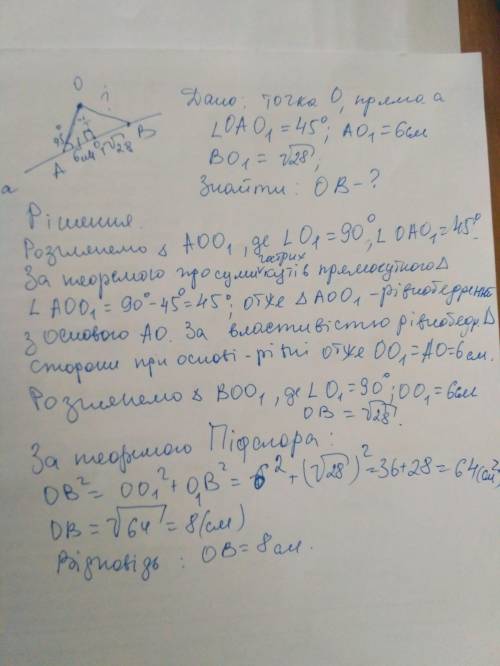 O
?
45°
6см
√28
A
B
a
Дано: точка O, пряма a
∠OAO₁ = 45°; AO₁ = 6см
BO₁ = √28;
Знайти: OB - ?
Рішення.
Розглянемо △ AOO₁, де ∠O₁ = 90°, ∠OAO₁ = 45°.
За теоремою про суму гострих кутів прямокутного △
∠AOO₁ = 90° - 45° = 45°; отже △AOO₁ - рівнобедрений
з основою AO. За властивістю рівнобедр △
сторони при основі - рівні отже OO₁ = AO = 6см.
Розглянемо △ BOO₁, де ∠O₁ = 90°; OO₁ = 6см
OB = √28.
За теоремою Піфагора:
OB² = OO₁² + O₁B² = 6² + (√28)² = 36 + 28 = 64 (см²)
OB = √64 = 8 (см)
Відповідь: OB = 8см.